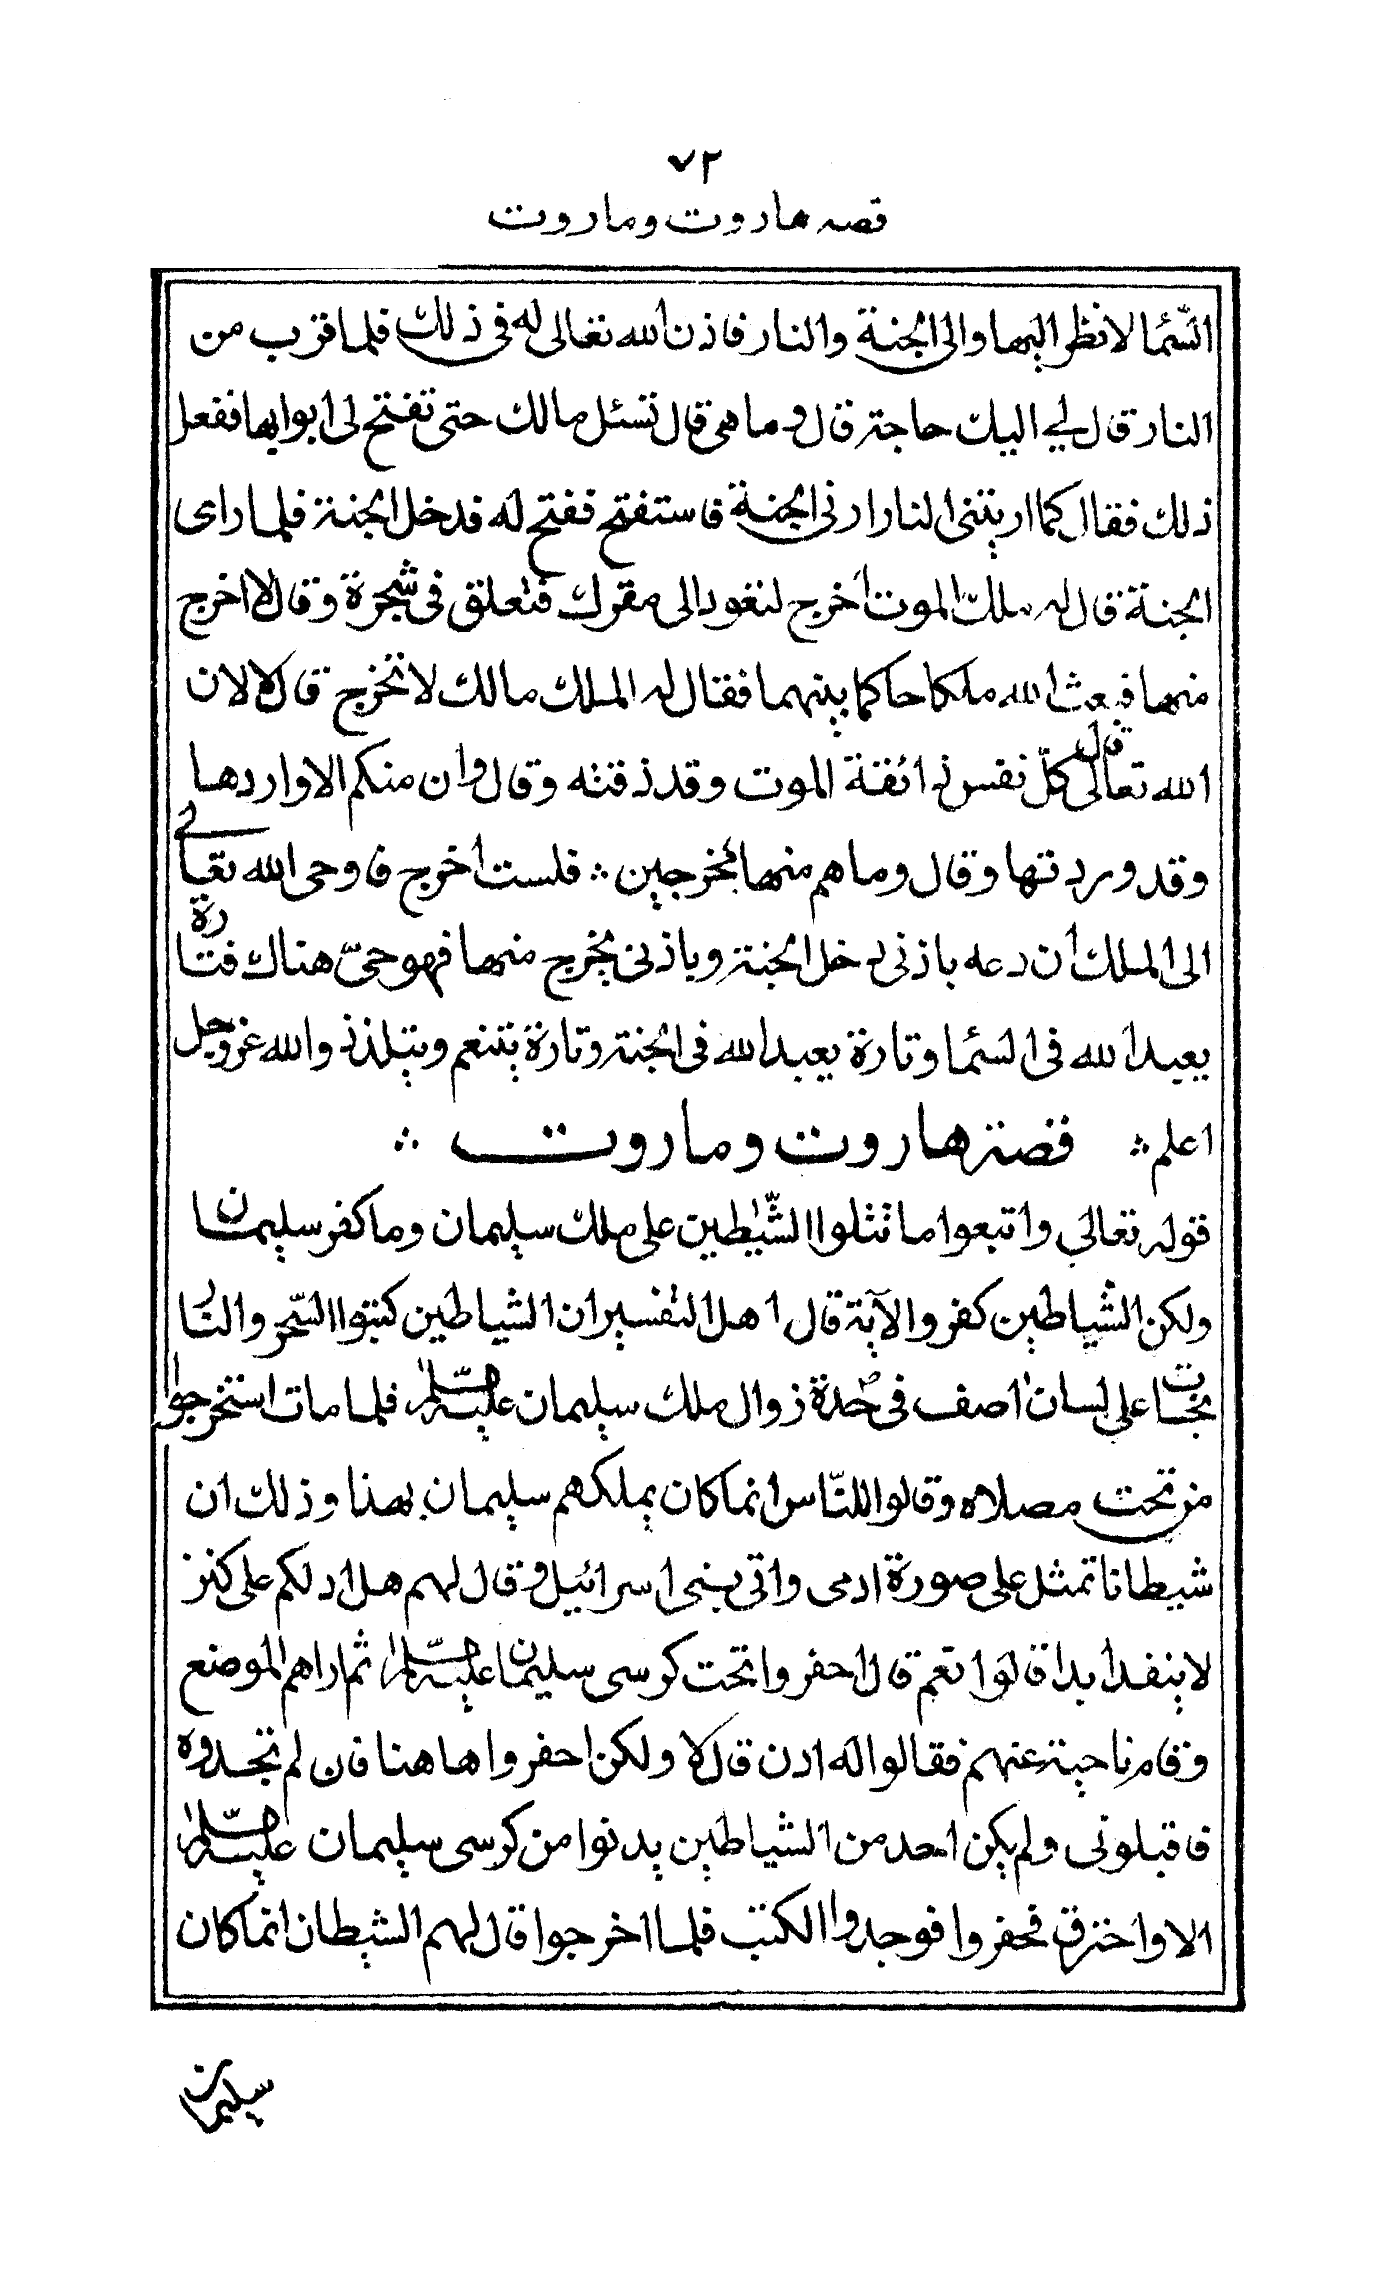 ٧٢
قصه هاروت وماروت
السّمٓا لانظر اليها والى الجنة والنار فاذن الله تعالى له فى ذلك فلما قرب من
النار قال لي اليك حاجة قال وما هى قال تسئل مالك حتى تفتح لى ابوابها ففعل
ذلك فقال كما اريتنى النار ارنى الجنة فاستفتح ففتح له فدخل الجنة فلما راى
الجنة قال له ملك الموت اخرج لتعود الى مقرك فتعلق فى شجرة وقال لا اخرج
منها فبعث الله ملكا حاكما بينهما فقال له الملك مالك لا تخرج قال لا لان
الله تعالى قال كلّ نفس ذائقة الموت وقد ذقته وقال وان منكم الا واردها
وقد وردتها وقال وما هم منها بمخرجين ∴ فلست اخرج فاوحى الله تعالى
الى الملك ان دعه باذنى دخل الجنة وباذنى يخرج منها فهو حىّ هناك فتارة
يعبد الله فى السمٓا وتارة يعبد الله فى الجنة وتارة يتنعم ويتلذذ والله عز وجل
اعلم ∴ قصة هاروت وماروت ∴
قوله تعالى واتبعوا ما تتلوا الشّيٰطين على ملك سليمان وما كفر سليمان
ولكن الشياطين كفروا الآية قال اهل التفسير ان الشياطين كتبوا السّحر والنار
نجات على لسان اصف فى مدة زوال ملك سليمان عليه السلام فلما مات استخرجوا
من تحت مصلاه وقالوا للنّاس انما كان يملكهم سليمان بهذا وذلك ان
شيطانا تمثل على صورة ادمى واتى بنى اسرائيل وقال لهم هل ادلكم على كنز
لا ينفد ابدا قالوا نعم قال احفروا تحت كرسى سليمان عليه السلام ثم اراهم الموضع
وقام ناحية عنهم فقالوا له ادن قال لا ولكن احفروا هاهنا فان لم تجدوه
فاقبلونى ولم يكن احد من الشياطين يدنوا من كرسى سليمان عليه السلام
الا واحترق فحفروا فوجدوا الكتب فلما اخرجوا قال لهم الشيطان انما كان
سليمان